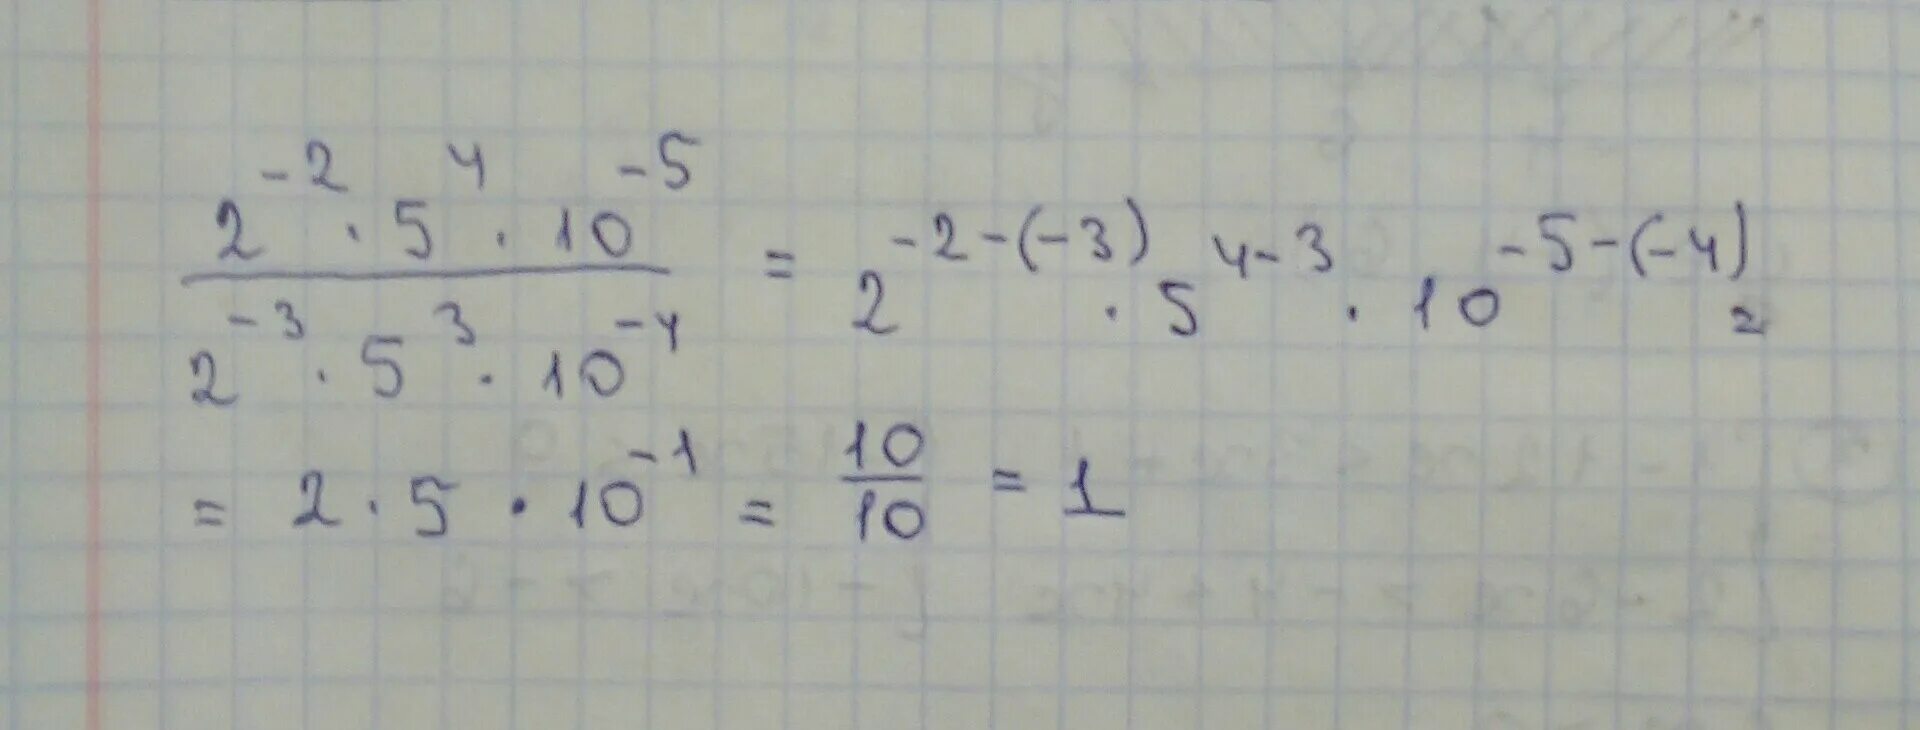 2^-2 · 5^4 · 10^-5 / 2^-3 · 5^3 · 10^-4 = 2^-2-(-3) · 5^4-3 · 10^-5-(-4) =
= 2 · 5 · 10^-1 = 10/10 = 1